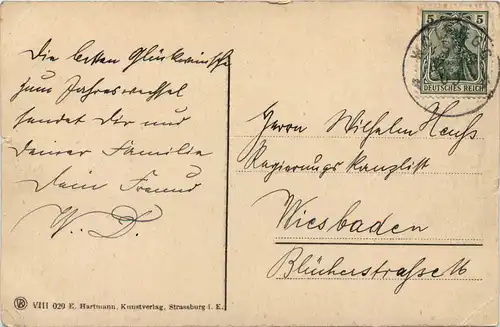 Die besten Glückwünsche
zum Jahreswechsel
sendet Dir und
Deiner Familie
Dein Freund
W. D.
5 5
DEUTSCHES REICH
Herrn Wilhelm
Regierungskanzlist
Wiesbaden
Blücherstrasse
VIII 029 E. Hartmann, Kunstverlag, Strassburg i. E.